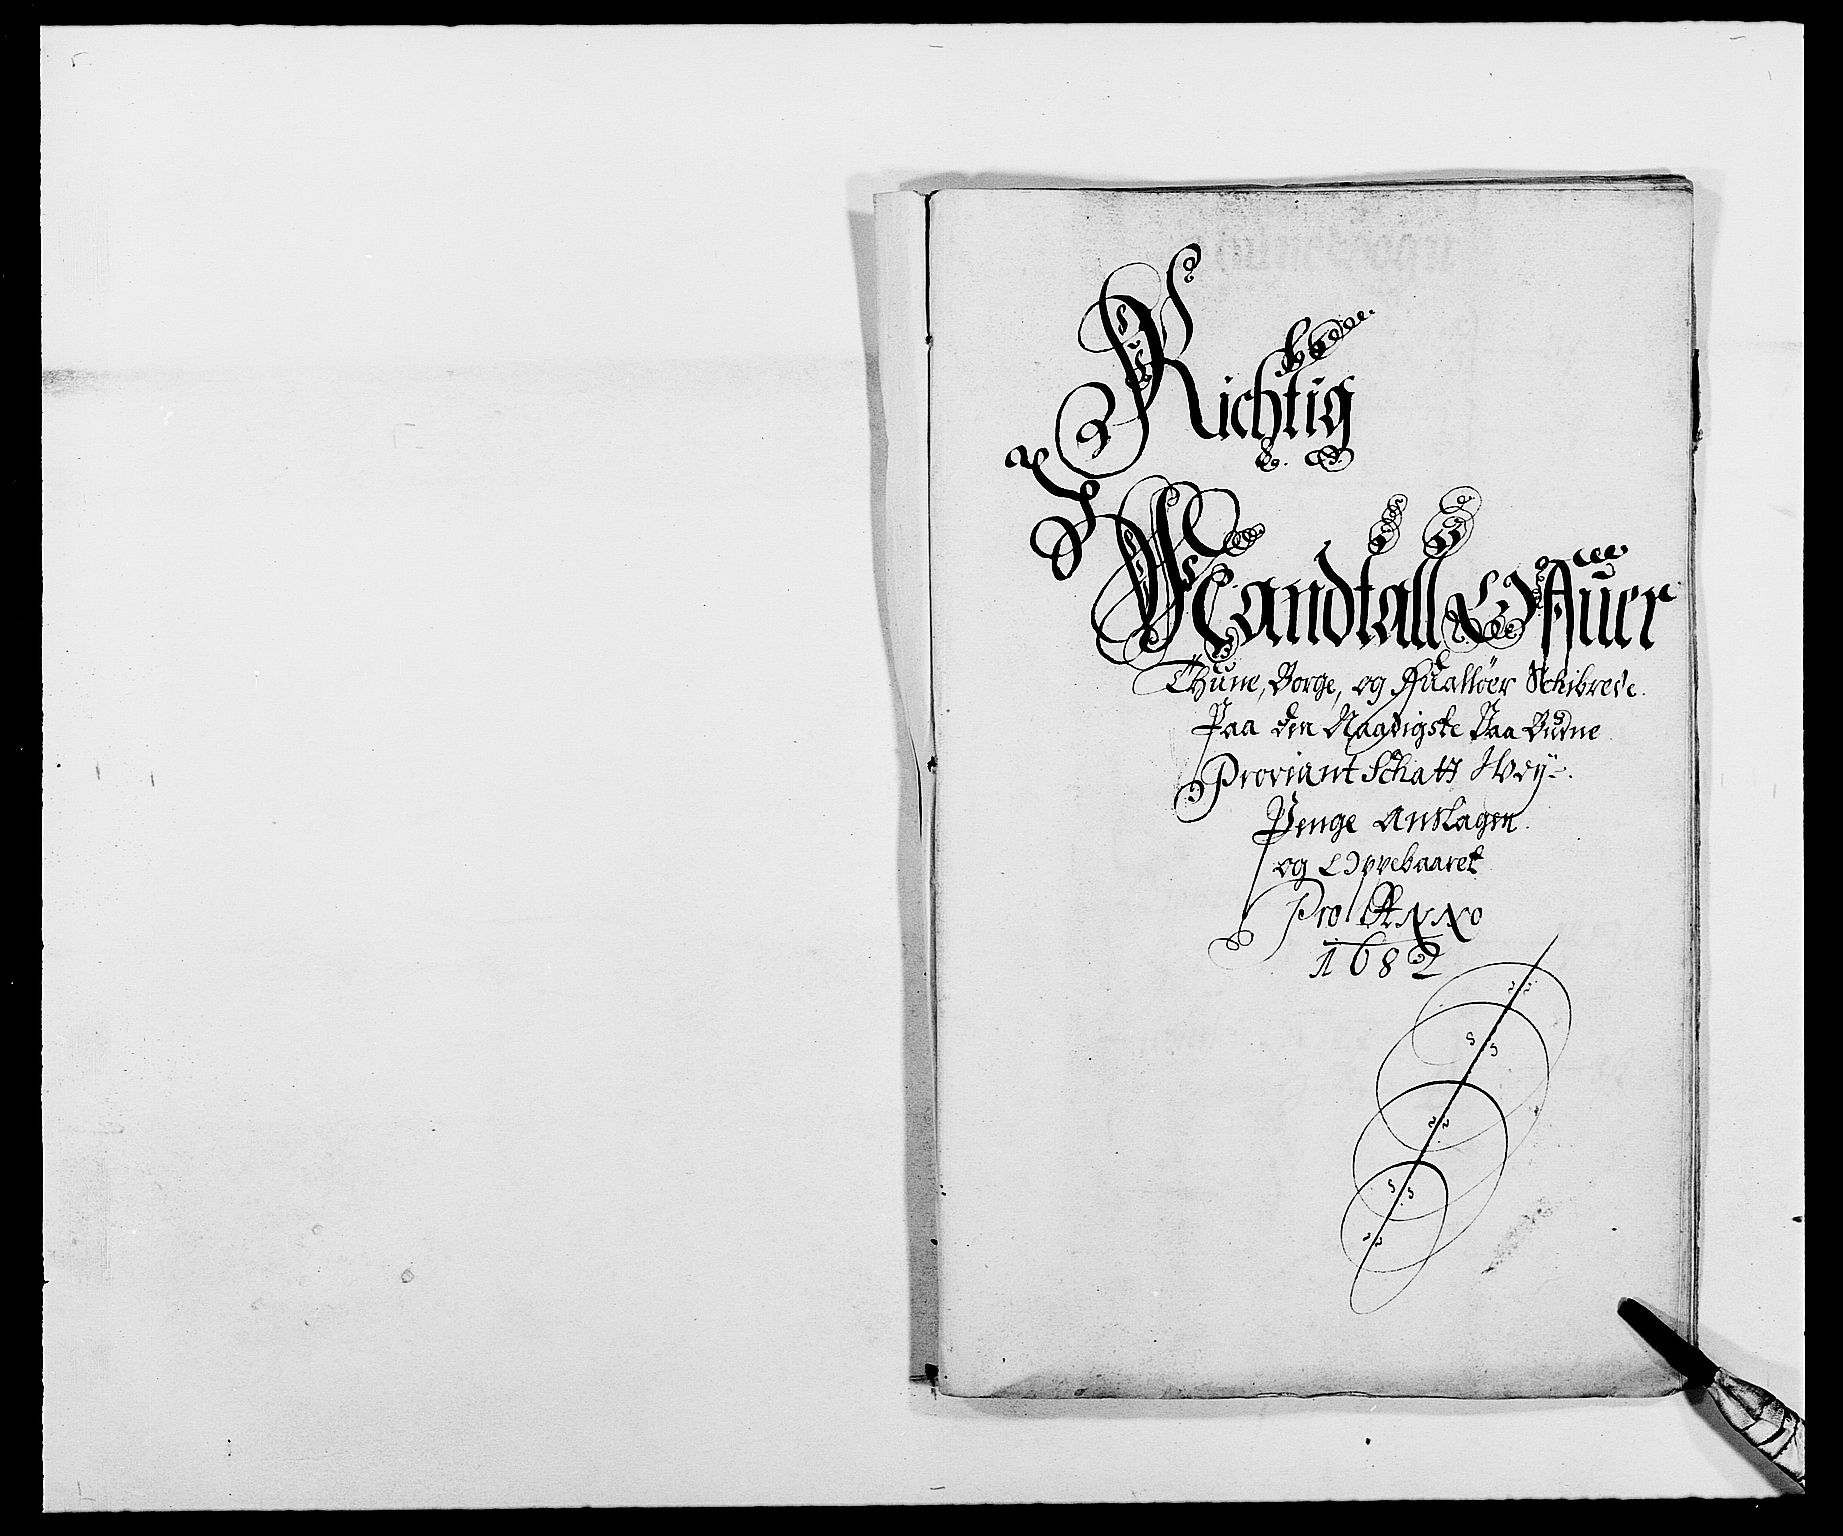 Richtig
Mandtall Offuer
Thune, Borge, og Huallöer Schibrede
Paa den Naadigste Paa Budne
Proviant Schatt
Penge Anslagen
og Oppebaaret
Pro Anno
1682